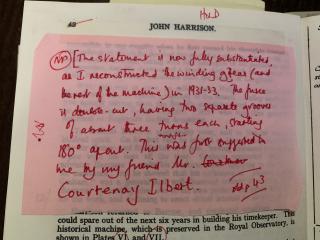 42
JOHN HARRISON.
[The statement is now fully substantiated,
as I reconstructed the winding gear (and
the rest of the machine) in 1931-33. The fusee
is double-cut, having two separate grooves
of about three turns each, starting
180° apart. This was first suggested to
me by my friend Mr.
Courtenay Ilbert.
could spare out of the next six years in building his timekeeper. This
historical machine, which is preserved in the Royal Observatory, is
shown in Plates VI. and VII.